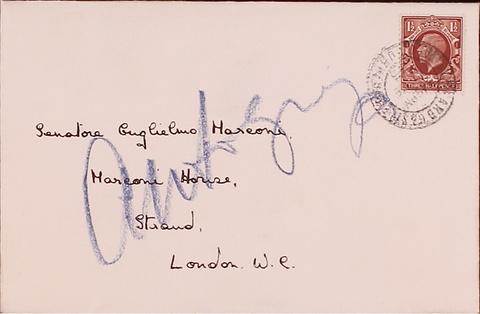 1½ 1½
THREE HALFPENCE
Senatore Guglielmo Marconi,
Marconi House,
Strand,
London. W.C.